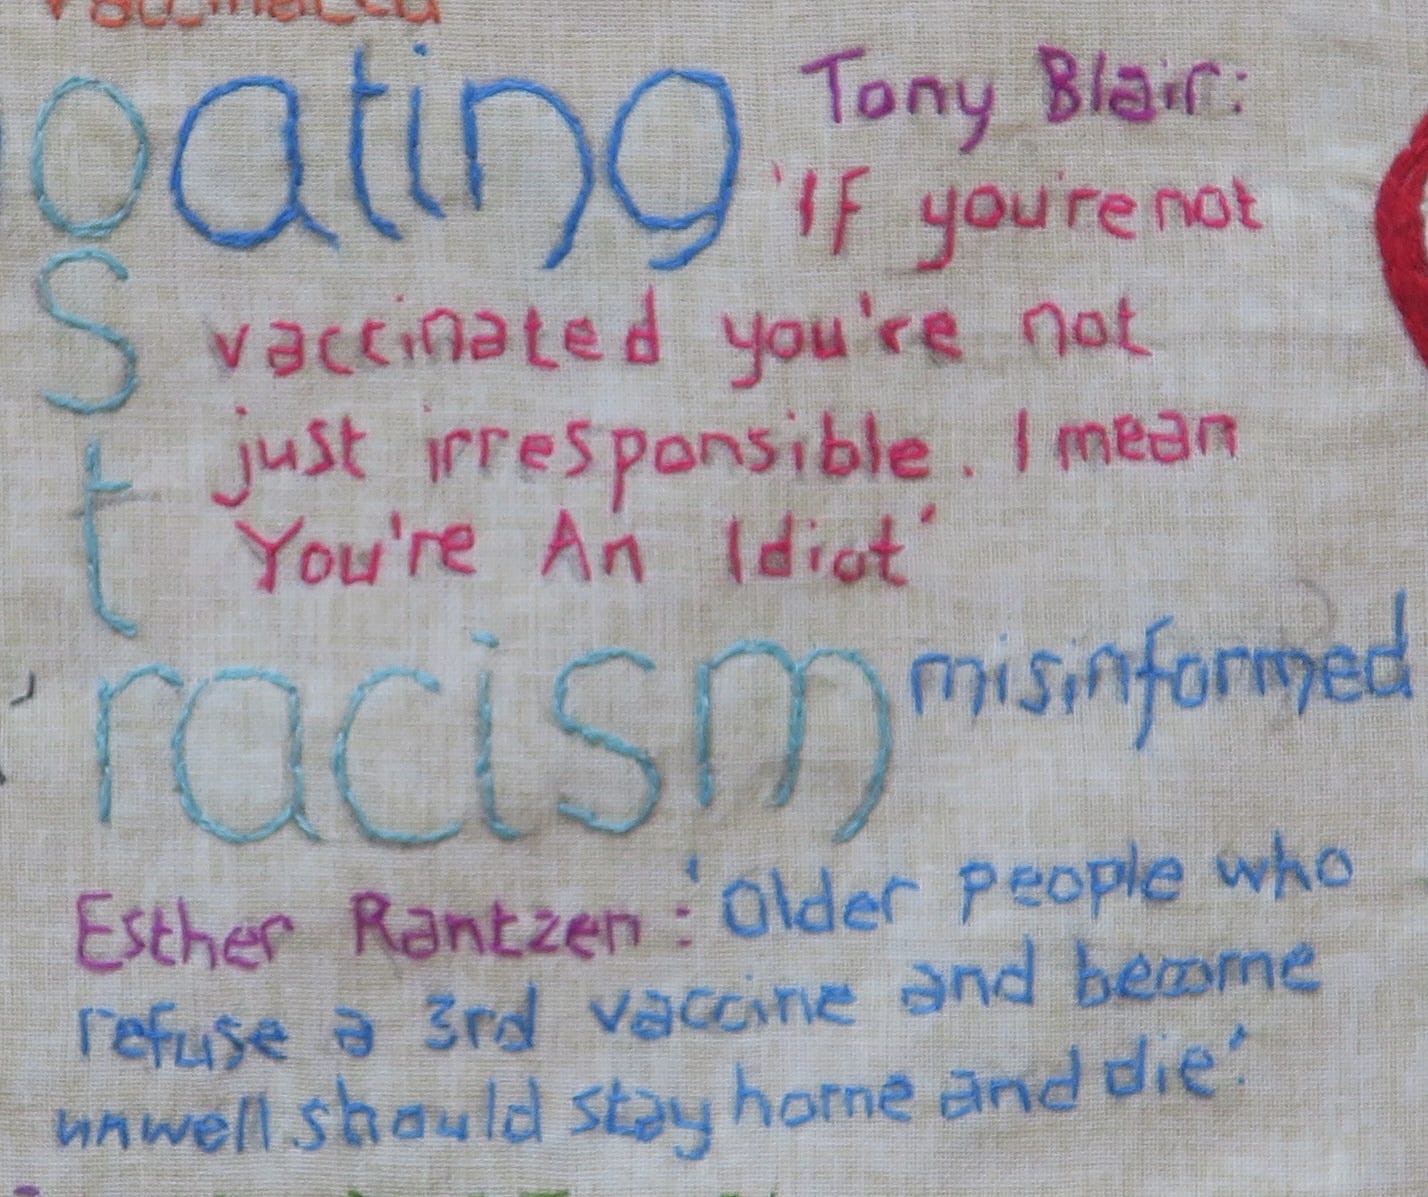 vaccinated
oating
Tony Blair:
'IF you're not
s
vaccinated you're not
t
just irresponsible. I mean
You're An Idiot'
racism
misinformed
Esther Rantzen: 'Older people who
refuse a 3rd vaccine and become
unwell should stay home and die'.